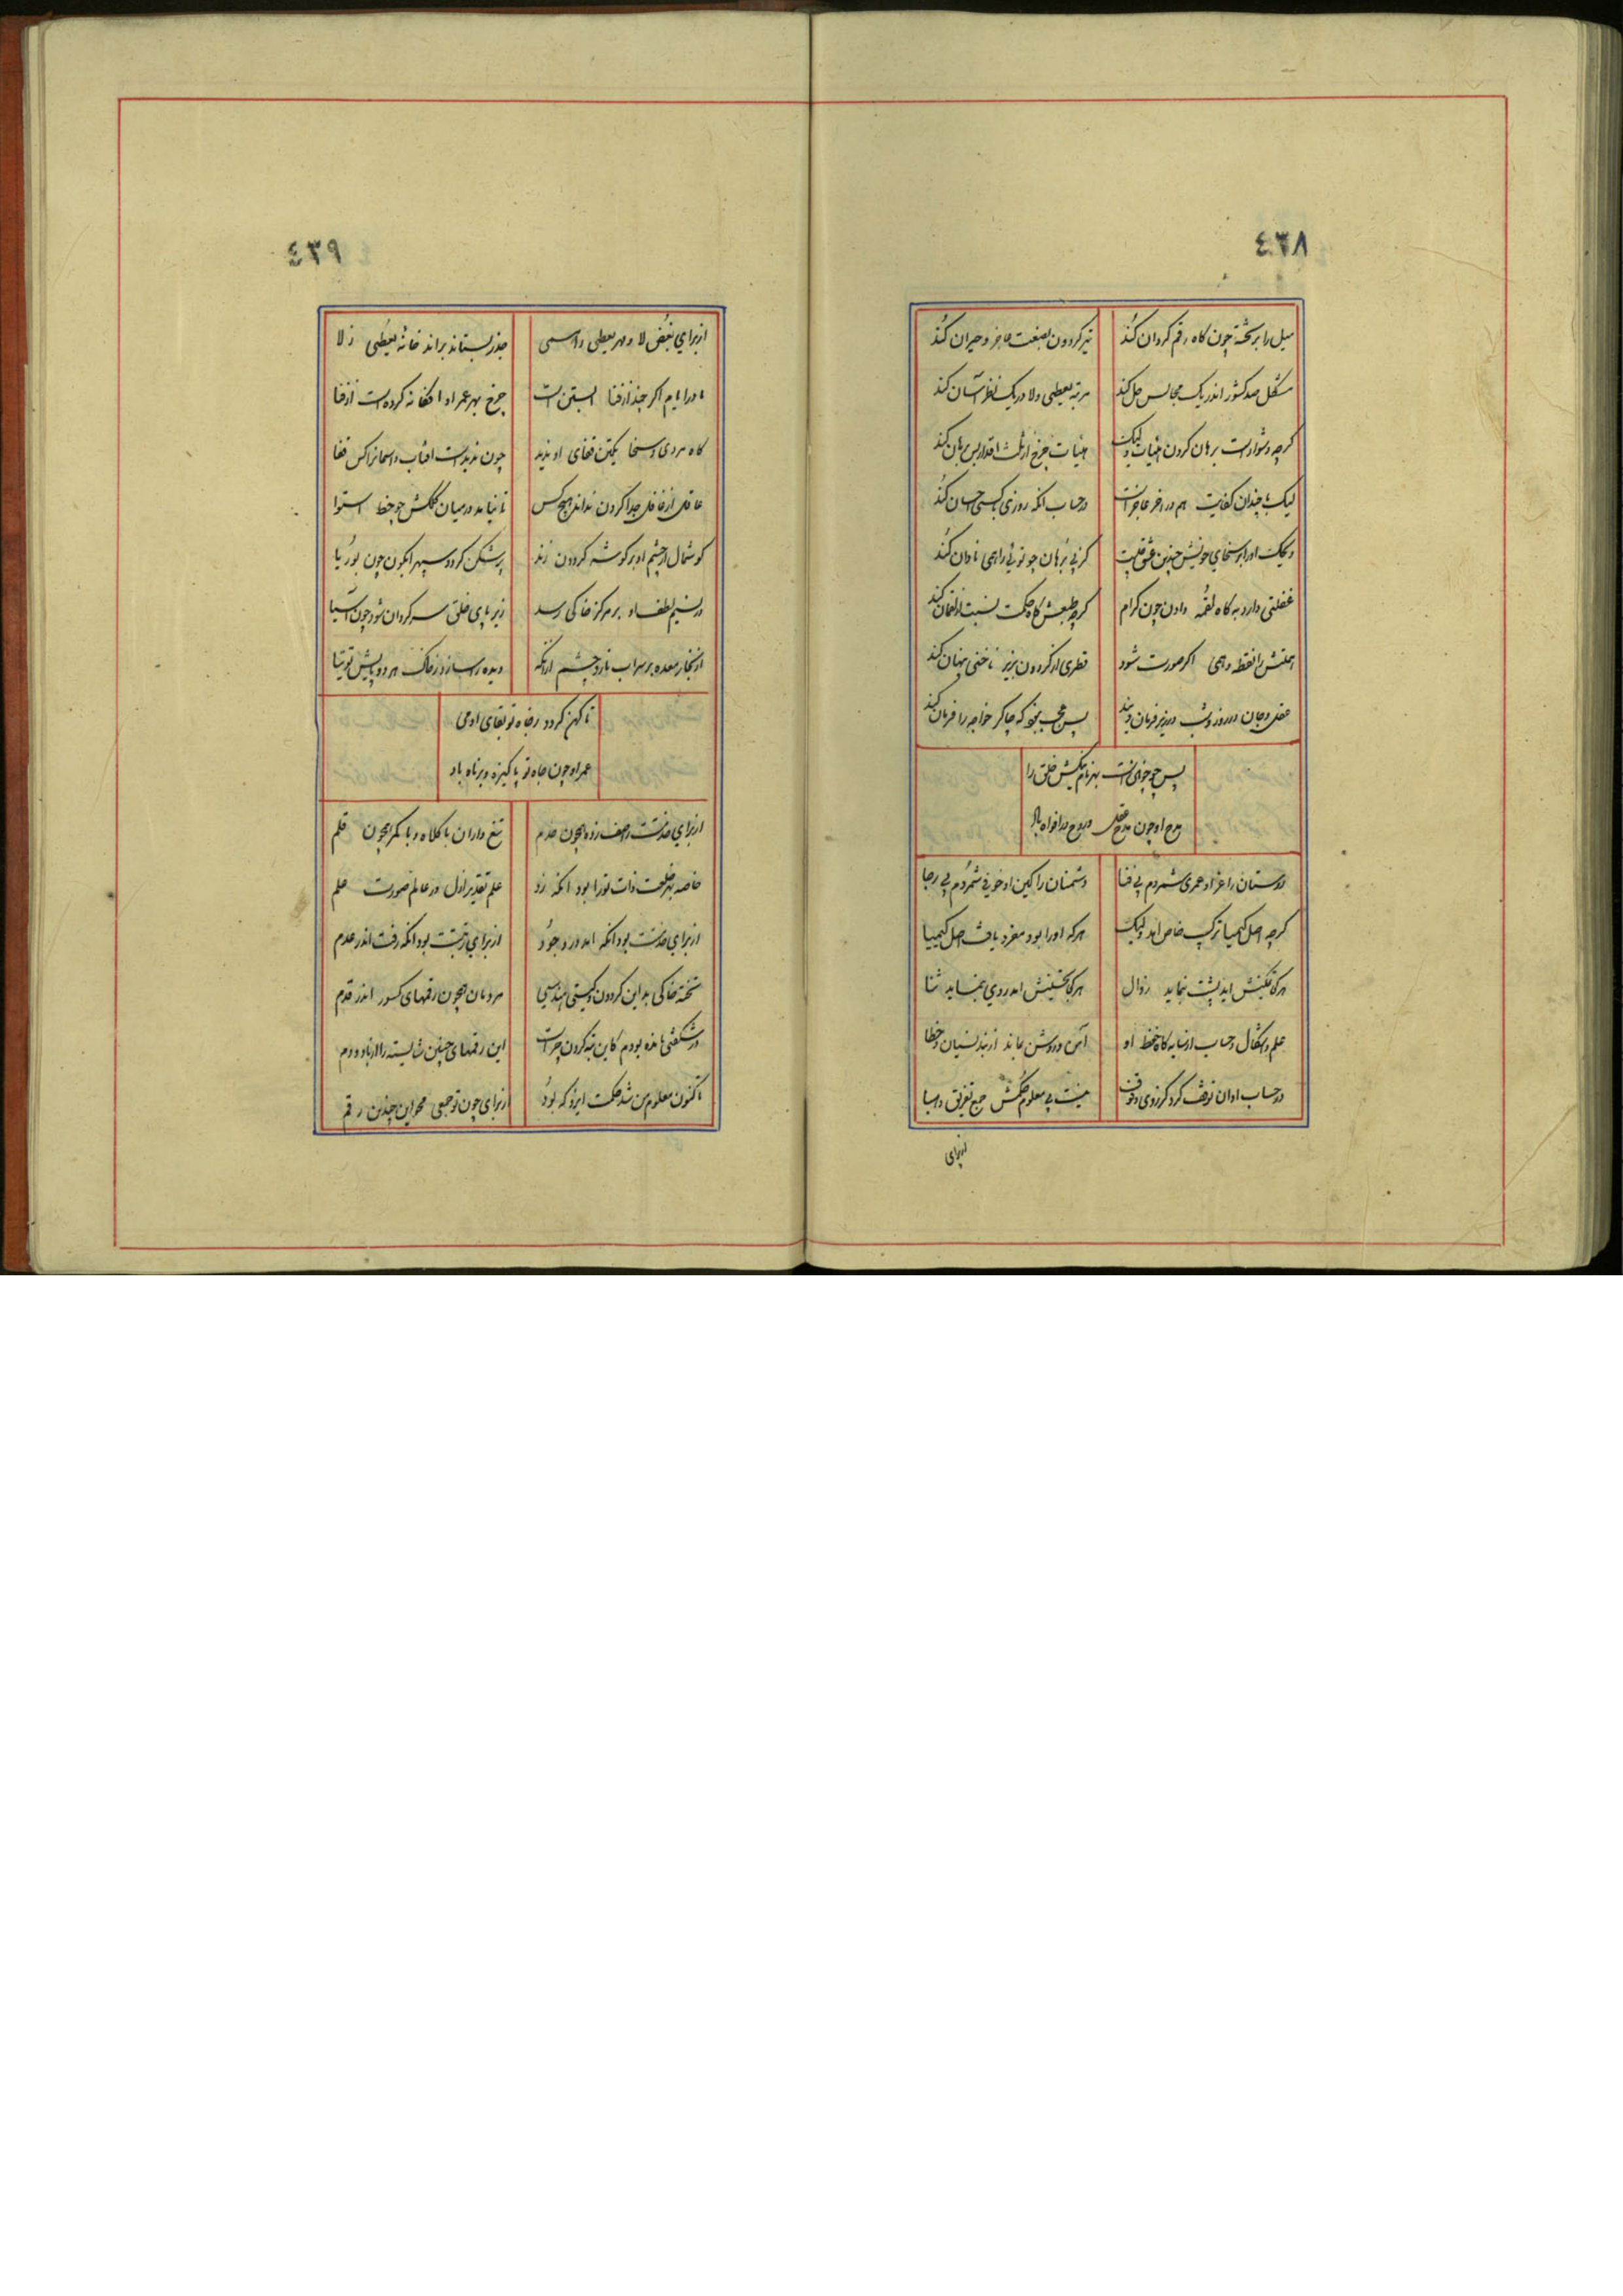 ٤٣٨
میل را بر تخته چون گاه رقم گردان کند
تیر گردون را بصنعت عاجز و حیران کند
مشکل صد کشور اندر یک مجالس حل کند
مرتبه یعطی و لا در یک نظر آسان کند
گرچه دشوارست برهان کردن اثبات ولیک
لیک با چندان کفایت هم در آخر عاجز است
در حساب آنکه روزی با کسی احسان کند
گر پی برهان چو تویی را همی نادان کند
غفلتی دارد به گاه لقمه دادن چون کرام
گرچه طبعش گاه حکمت نسبت از لقمان کند
نقطه وهمی اگر صورت شود
عقل و جان در روز و شب در زیر فرمان ویند
پس عجب نبود که چاکر خواجه را فرمان کند
پس چو چوخوانست بهر نام نیکش خلق را
مدح او چون مدح عقل و روح در افواه باد
دوستان را عز او عمری شمردم بی فنا
دشمنان را کین او خوفی شمردم بی رجا
گرچه اصل کیمیا ترکیب خاص آمد ولیک
هرکه او را بود مفرد یافت اصل کیمیا
هر کرا تمکینش آید پشت ننماید زوال
هر کرا تحسینش آمد روی ننماید ثنا
علم و اشکال و حساب از سایه گاه خط او
آمن و روشن بماند از بند نسیان و خطا
در حساب او ان توقف کرد کز روی وقوف
نیست بی معلوم حکمش جمع تفریق و اسا
از برای
٤٣٩
از برای بغض لا و مهر یعطی را همی
جذر بستاند براند خانه یعطی ز لا
مادر ایام اگر چند از فنا آبستن است
چرخ بهر عمر او افکانه کردست از فنا
گاه مردی و سخا یکتن قفای او ندید
چون ندیدست آفتاب و آسمانرا کس قفا
عاقل از غافل جدا کردن نداند هیچ کس
تا نیاید در میان کلکش چو خط استوا
گوشمال از چشم او بر گوشه گردون زند
پرشکن گردد سپهر آبگون چون بوریا
ور نسیم لطف او بر مرکز خاکی رسد
زیر پای خلق سرگردان شود چون آسیا
دیده را سازد ز خاک هر دو پایش توتیا
تا کهن گردد رفاه تو بقای آدمی
عمر او چون جاه تو پاکیزه و برناه باد
از برای خدمتت صف زده همچون خدم
تیغ داران با کلاه و با کمر همچون قلم
خاصه بهر خلعت ذات تو را بود آنکه زد
علم تقدیر ازل در عالم صورت علم
از برای خدمتت بود آنکه آمد در وجود
از برای زینتت بود آنکه رفت اندر عدم
تخته خاکی بد این گردون گیتی هندسی
مردمان همچون رقمهای کسور اندر قدم
در شگفتی مانده بودم کاین تبه کردن چراست
این رقمهای چنین شایسته را از باد و دم
تا کنون معلوم من شد حکمت ایزد که بود
از برای چون تو جمعی محو این چندین رقم